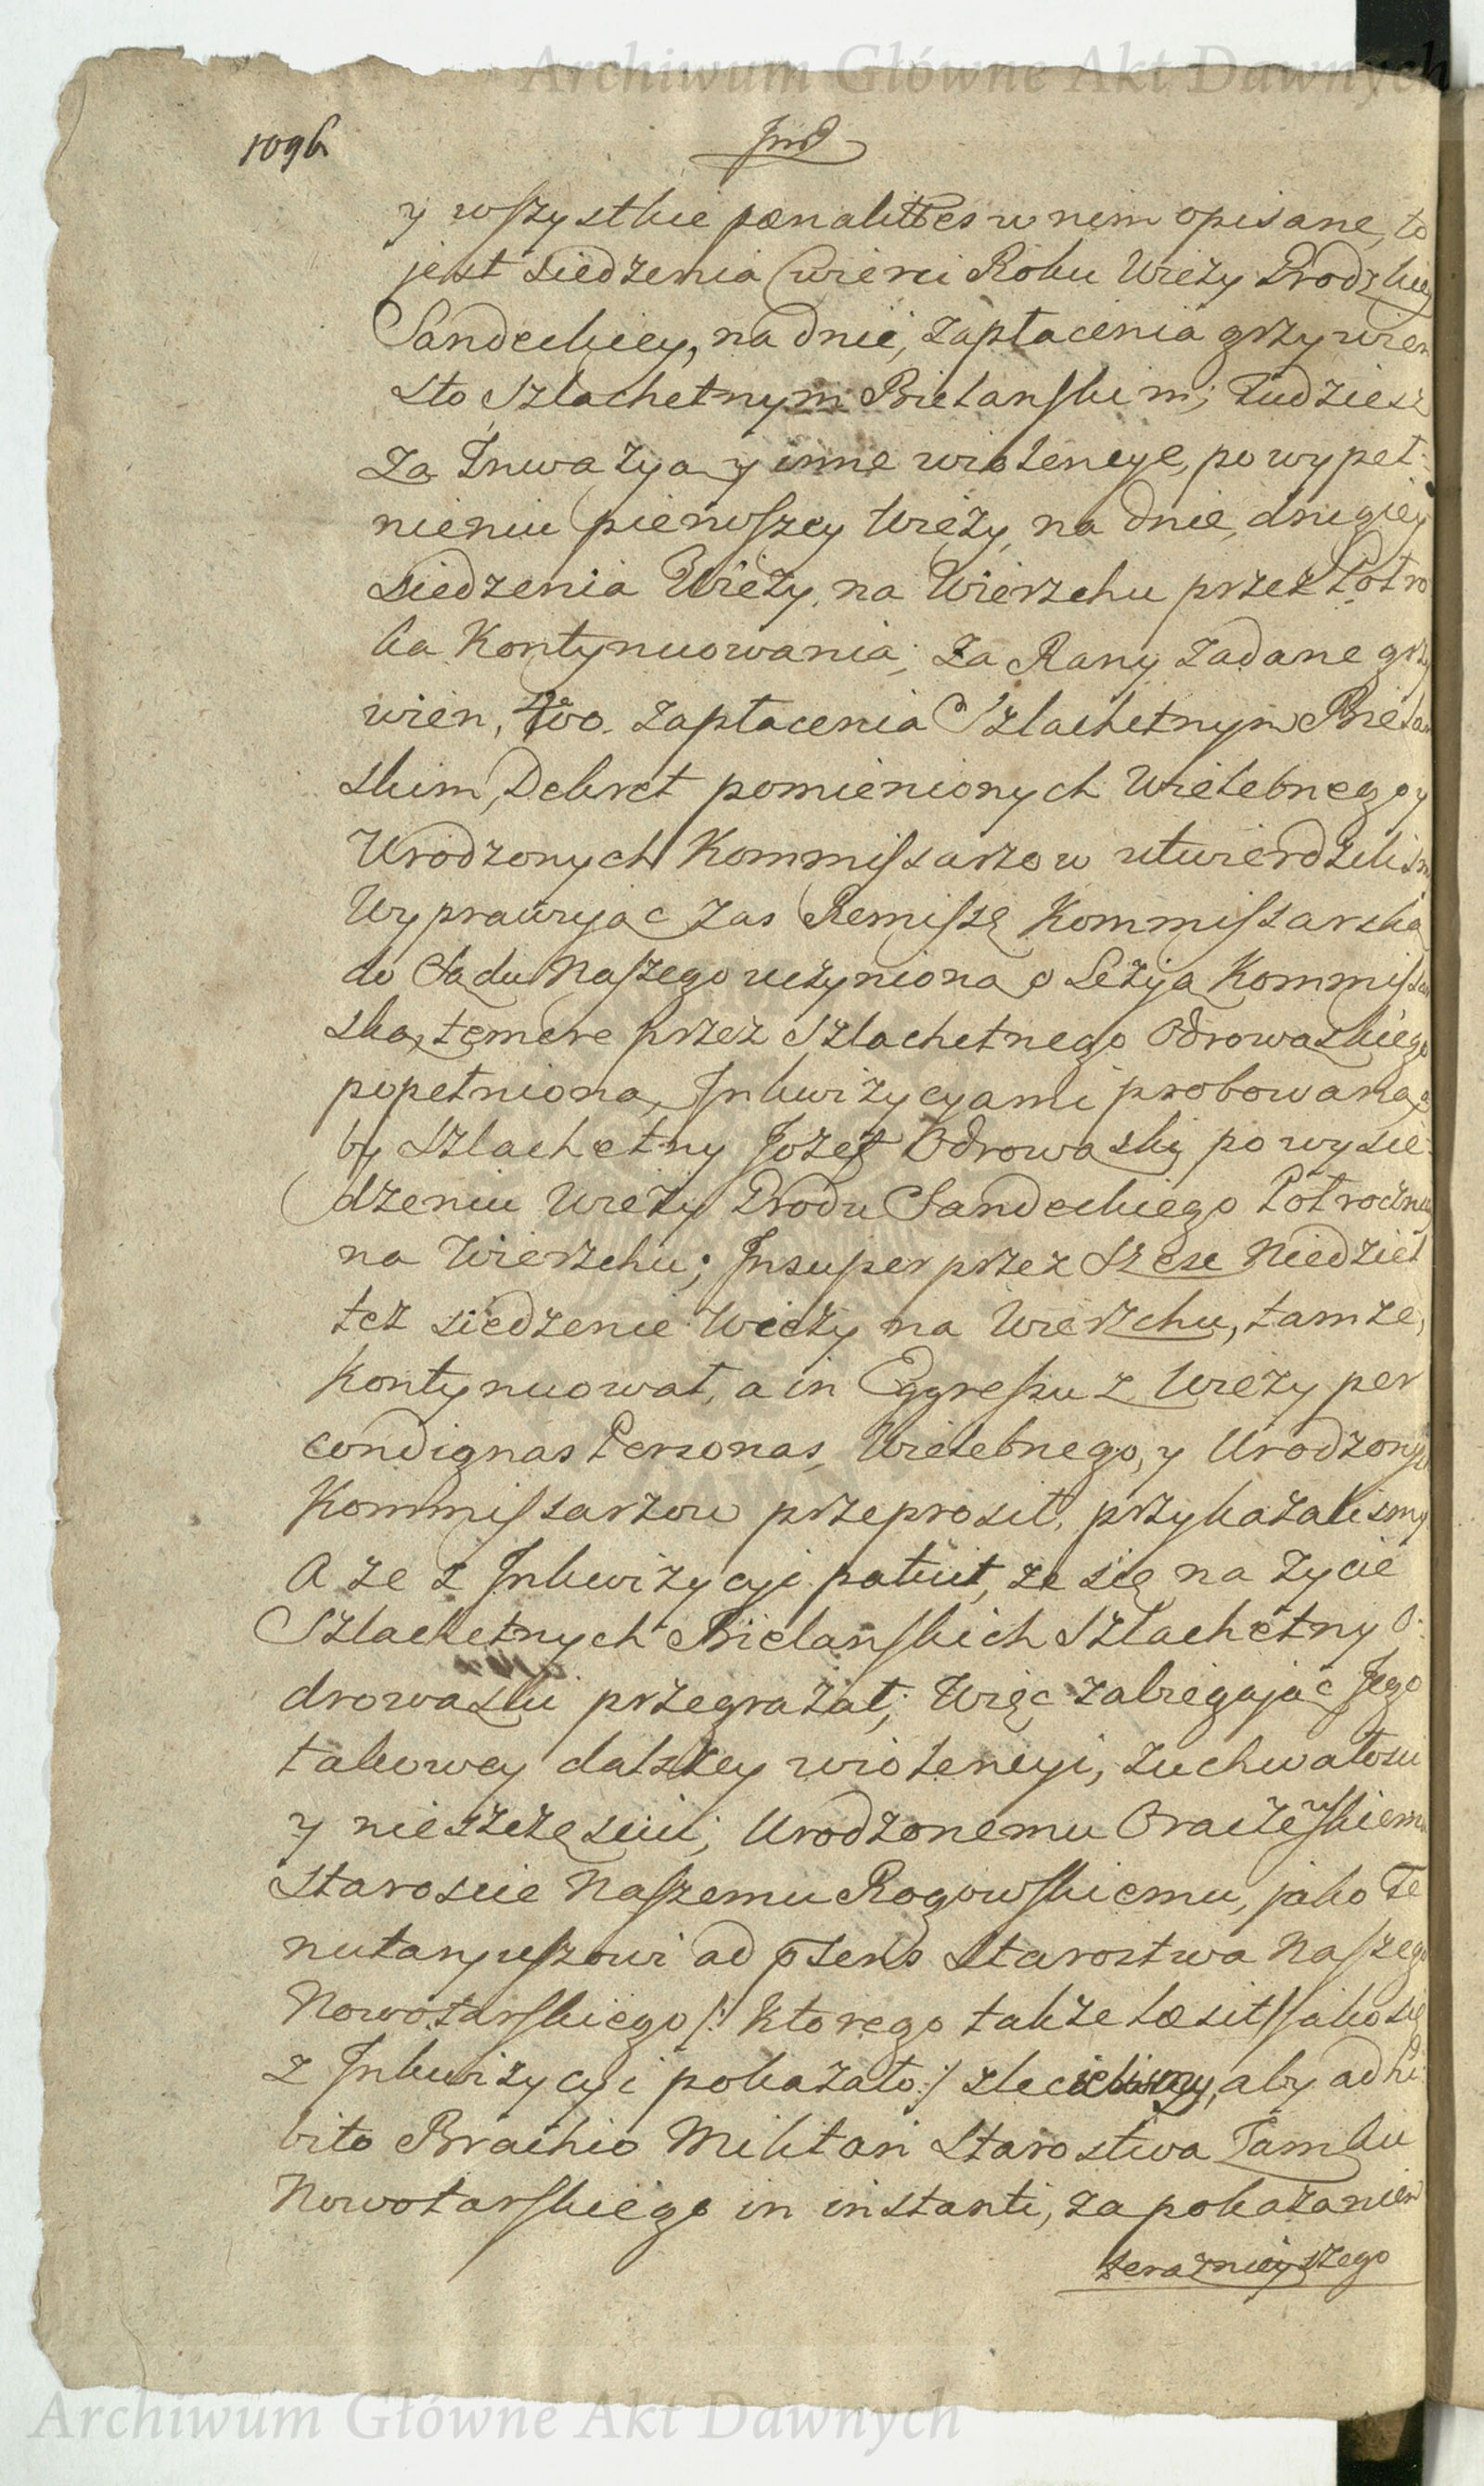 Archiwum Główne Akt Dawnych
1096
Ind
y wszystkie pœnalittes w nim opisane, to
jest siedzenia cwierci Roku Wieży Grodzkiey
Sandeckiey, na dnie, zapłacenia grzywien
sto Szlachetnym Bielanskim; Tudziesz
za Inwazyą y inne wiolencye, po wypeł-
nieniu pierwszey Wieży, na dnie, drugiey
siedzenia Wieży, na Wierzchu przez Połro
ka Kontynuowania; za Rany zadane grzy
wien, 400. zapłacenia Szlachetnym Bielan
skim, Dekret pomienionych Wielebnego y
Urodzonych Kommissarzow utwierdzilism
Wyprawując zas Remissę Kommissarską
do Sądu Naszego uczynioną o Lezyą Kommissar
ską, temere przez Szlachetnego Odrowąskiego
popełnioną, Inkwizycyami probowaną, a
by Szlachetny Jozef Odrowąski, po wysie-
dzeniu Wieży Grodu Sandeckiego Połroczney
na Wierzchu; Insuper przez Szesc Niedziel
też siedzenie Wieży na Wierzchu, tamże,
Kontynuował, a in Egressu z Wieży per
condignas Personas, Wielebnego, y Urodzonych
Kommissarzow przeprosił, przykazalismy
A że z Inkwizycyi patuit, że się na życie
Szlachetnych Bielanskich Szlachetny O-
drowąski przegrażał; Więc zabiegając Jego
takowey dalszey wiolencyi, zuchwałosci
y nieszczęsciu; Urodzonemu Oraczewskiemu
Staroscie Naszemu Rogowskiemu, jako Te
nutaryuszowi ad prsens Starostwa Naszego
Nowotarskiego /: ktorego także læsit jako się
z Inkwizycyi pokazało :/ zlecilismy, aby adhi
bito Brachio Militari Starostwa Zamku
Nowotarskiego in instanti, za pokazaniem
teraznieyszego
Archiwum Główne Akt Dawnych